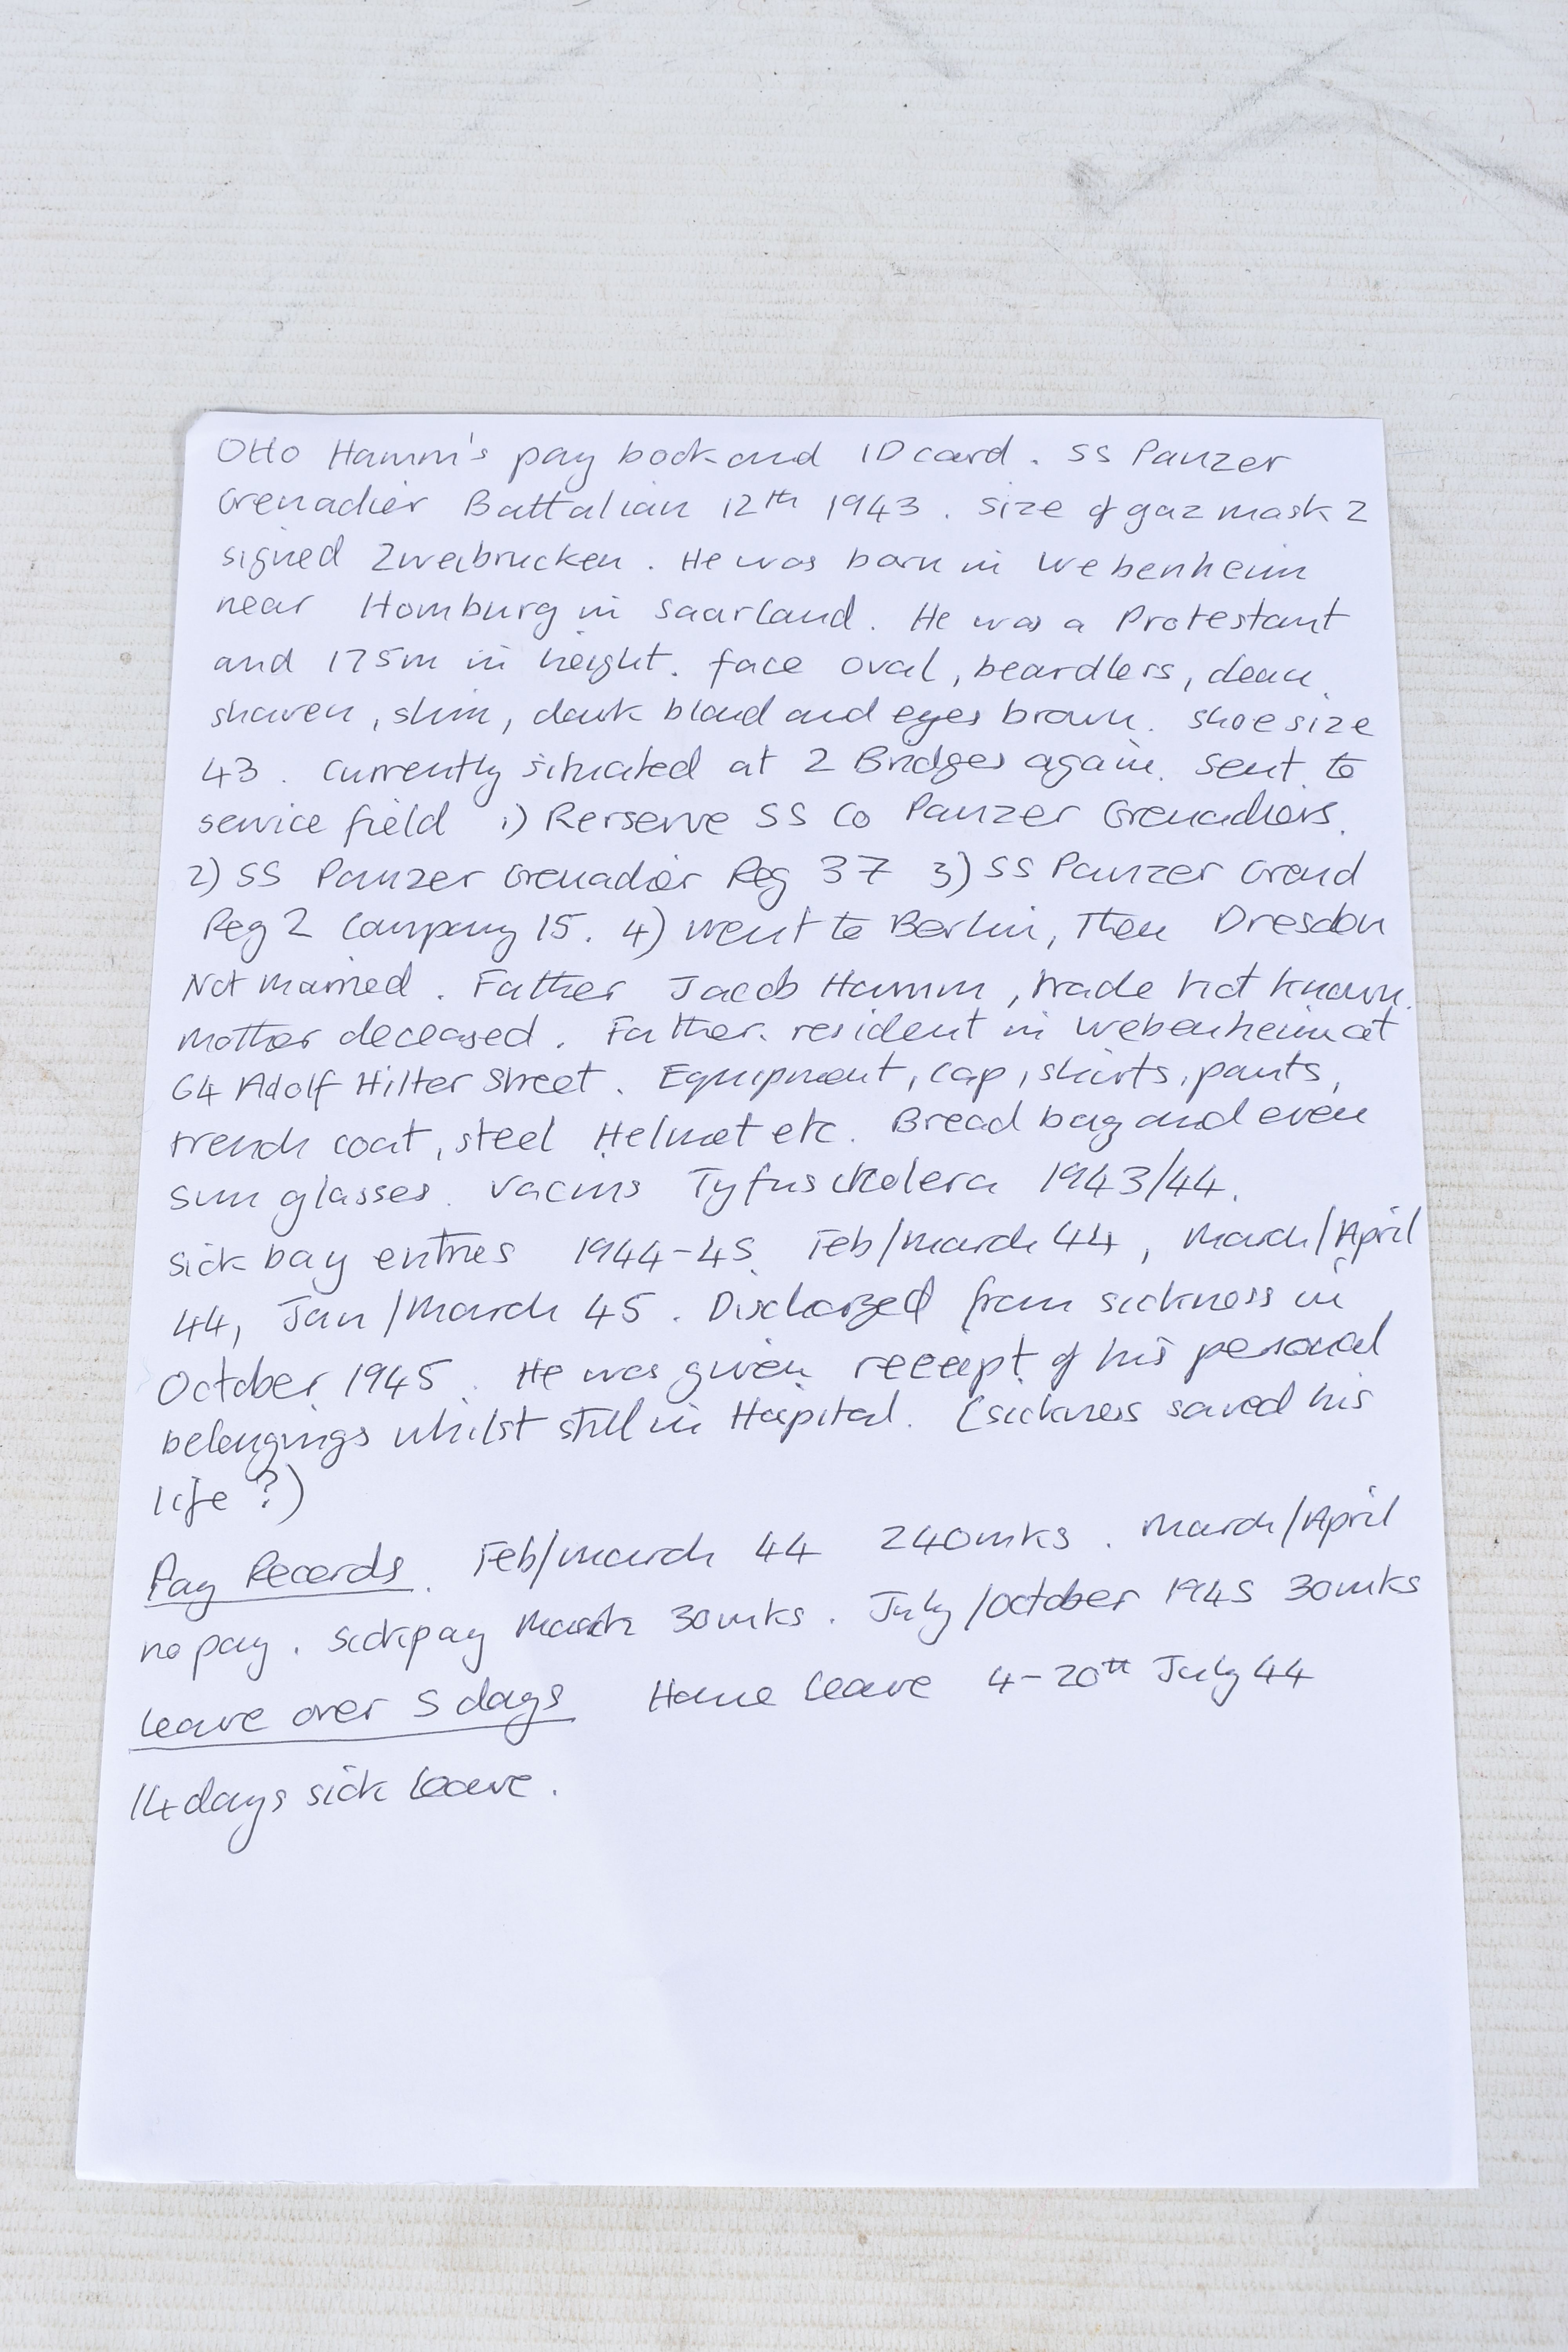 Otto Hamm's pay book and ID card. SS Panzer
Grenadier Battalian 12th 1943. size of gaz mask 2
signed Zweibrucken. He was born in Webenheim
near Homburg in Saarland. He was a Protestant
and 175m in height. face oval, beardless, clean
shaven, slim, dark blond and eyes brown. shoe size
43. Currently situated at 2 Bridges again. sent to
service field 1) Rerserve SS Co Panzer Grenadiers.
2) SS Panzer Grenadier Reg 37 3) SS Panzer Grend
Reg 2 Company 15. 4) went to Berlin, Then Dresden
Not married. Father Jacob Hamm, trade not known.
Mother deceased. Father. resident in Webenheim at
64 Adolf Hilter Street. Equipment, cap, shirts, pants,
trench coat, steel Helmet etc. Bread bag and even
sun glasses. Vacins Tyfus Cholera 1943/44.
sick bay entries 1944-45. Feb/March 44, March/April
44, Jan/March 45. Discharged from sickness in
October 1945. He was given receipt of his personal
belongings whilst still in Hospital. (sickness saved his
life?)
Pay Records. Feb/March 44 240mks. March/April
no pay. sickpay March 30mks. July/October 1945 30mks
Leave over 5 days Home leave 4-20th July 44
14 days sick leave.